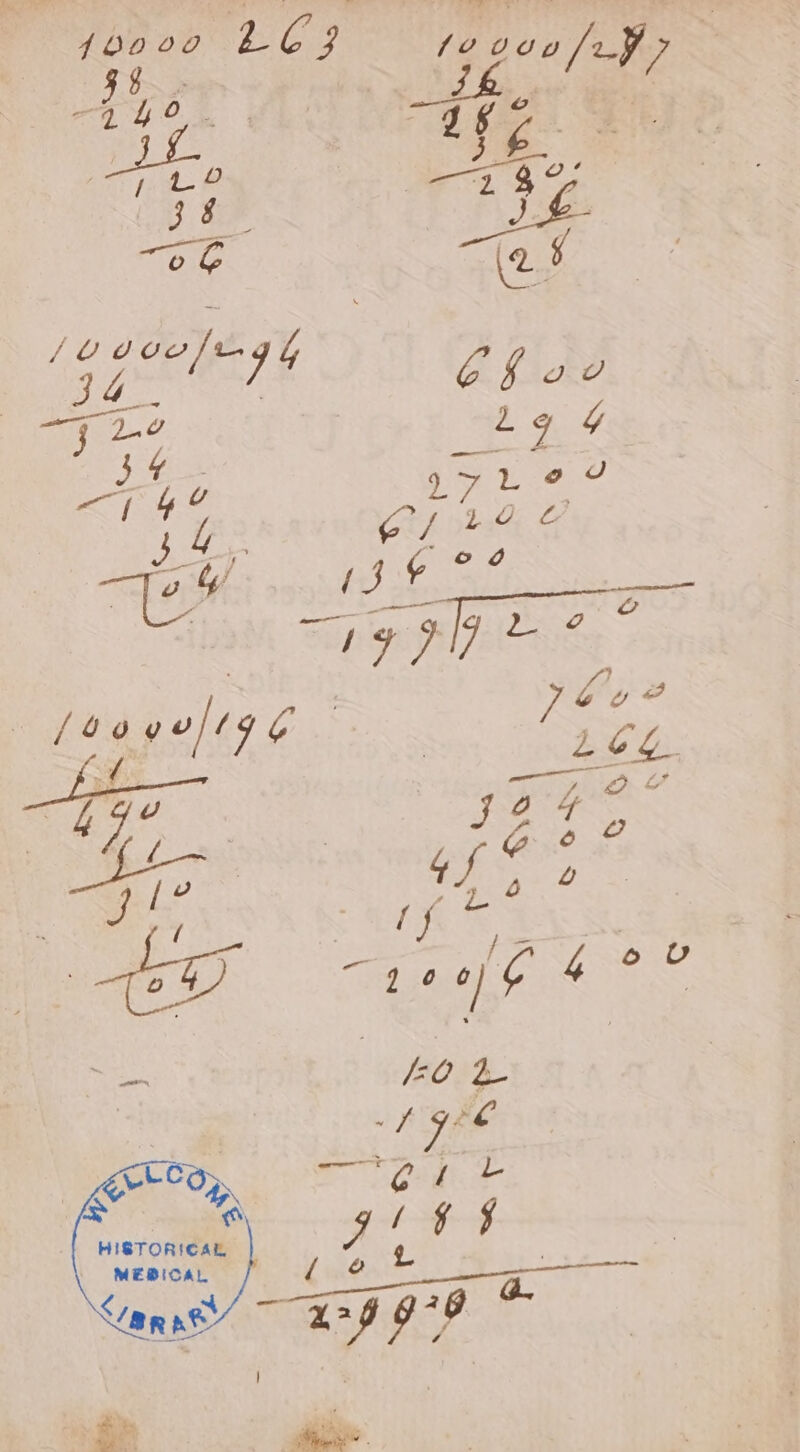 10000 263
38
240
38
120
38
06
10000/277
36
280
36
280
36
(28
10000/294
34
320
34
140
34
(04)
6800
294
27200
61200
13600
199|9200
10000/196
51
490
51
310
51
(04)
7600
264
30400
45600
15200
200/6400
102
196
612
918
102
WELLCOME
HISTORICAL
MEDICAL
LIBRARY